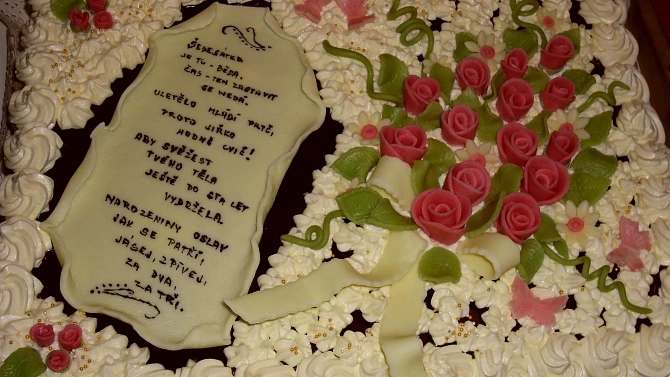 ŠEDESÁTKA
JE TU - BĚDA.
ČAS - TEN ZASTAVIT
SE NEDÁ.
ULETĚLO MLÁDÍ PRYČ,
PROTO JIŘKO
HODNĚ CVIČ!
ABY SVĚŽEST
TVÉHO TĚLA
JEŠTĚ DO STA LET
VYDRŽELA.
NAROZENINY OSLAV
JAK SE PATŘÍ,
JÁSEJ, ZPÍVEJ,
ZA DVA,
ZA TŘI.